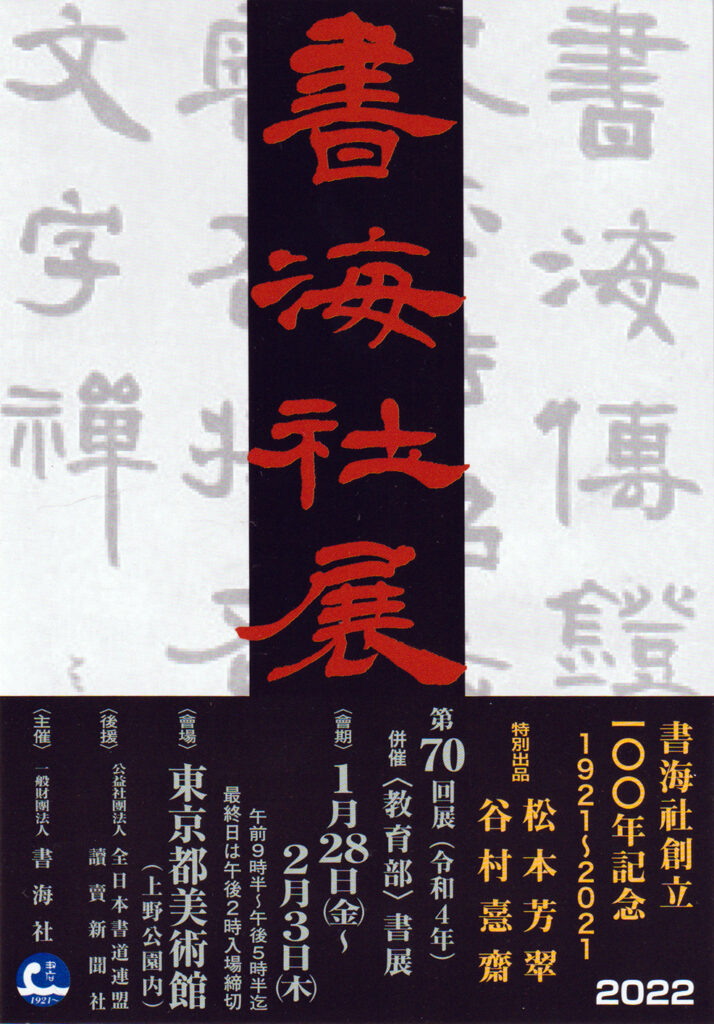 書海社展
書海傳鐙
文字禪
書海社創立
一〇〇年記念
1921〜2021
特別出品
松本芳翠
谷村憙齋
第70回展(令和4年)
併催〈教育部〉書展
〈會期〉
1月28日㊎〜
2月3日㊍
午前9時半〜午後5時半迄
最終日は午後2時入場締切
〈會場〉
東京都美術館
(上野公園内)
〈後援〉
公益社團法人 全日本書道連盟
讀賣新聞社
〈主催〉
一般財團法人 書海社
1921〜
2022